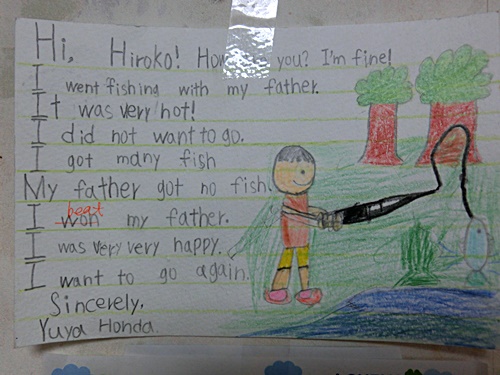 Hi, Hiroko! How you? I'm fine!
I went fishing with my father.
It was very hot!
I did not want to go.
I got many fish
My father got no fish.
beat
I won my father.
I was very very happy.
I want to go again.
Sincerely,
Yuya Honda.